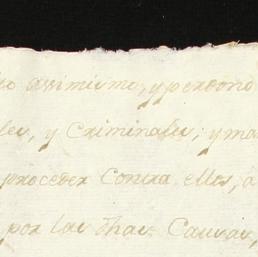 so assimismo, y perdono
les, y Criminales, y ma
proceder Contra ellos, a
por las dhas Causas,